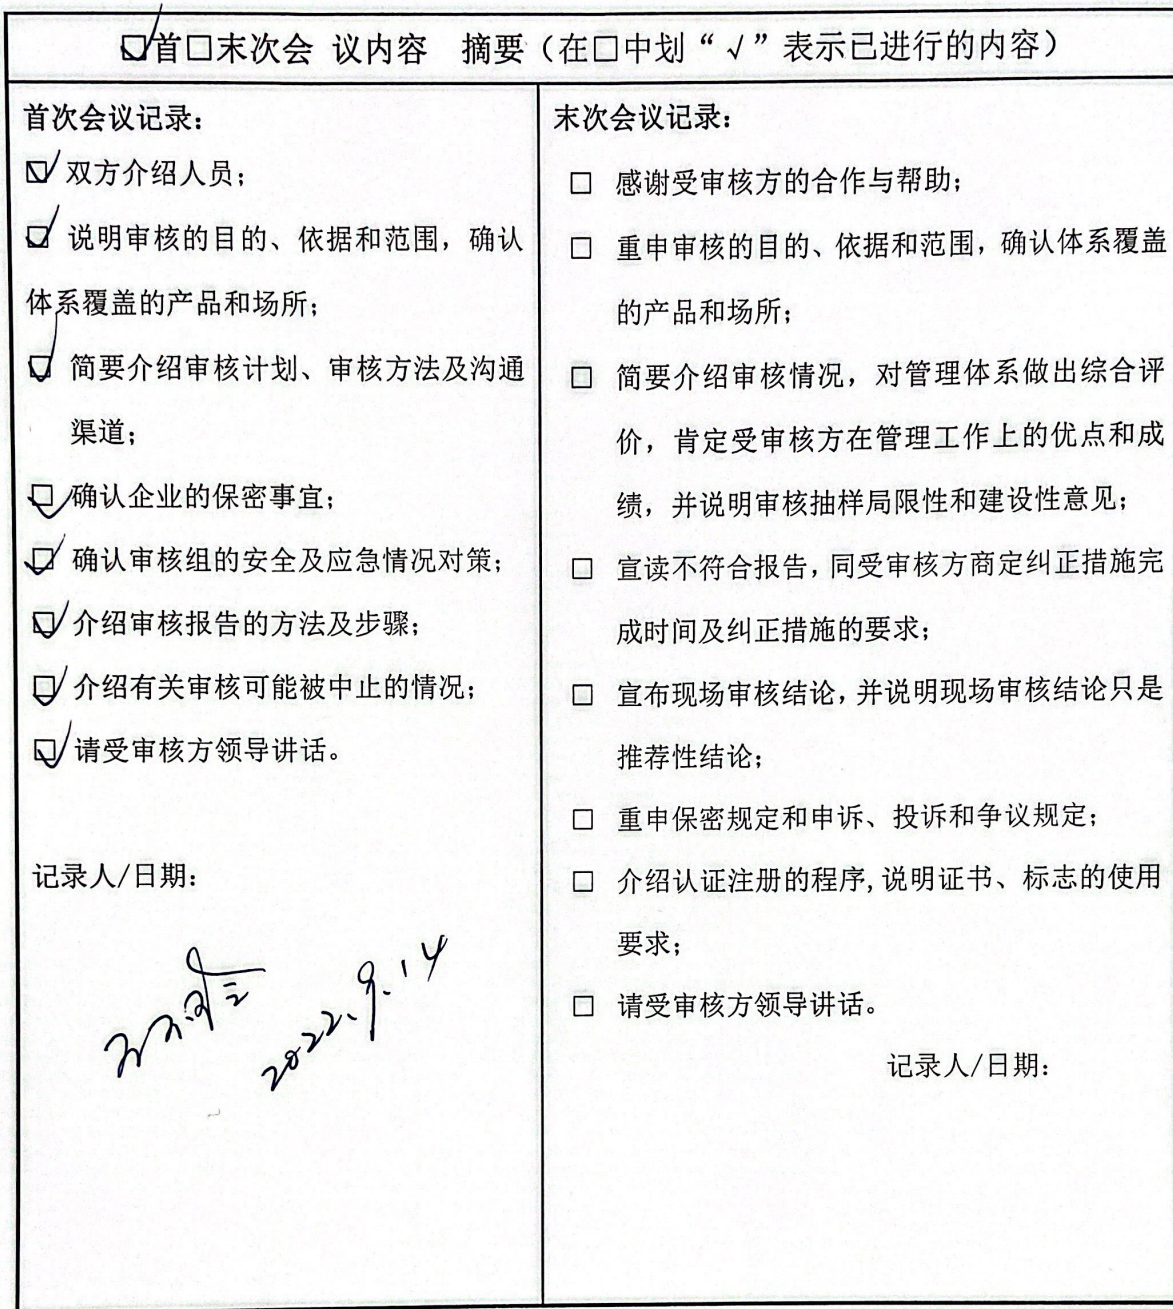 ☑首□末次会 议内容 摘要（在□中划“√”表示已进行的内容）
首次会议记录：
☑ 双方介绍人员；
☑ 说明审核的目的、依据和范围，确认
体系覆盖的产品和场所；
☑ 简要介绍审核计划、审核方法及沟通
渠道；
☑ 确认企业的保密事宜；
☑ 确认审核组的安全及应急情况对策；
☑ 介绍审核报告的方法及步骤；
☑ 介绍有关审核可能被中止的情况；
☑ 请受审核方领导讲话。
记录人/日期：
2022.9.14
末次会议记录：
□ 感谢受审核方的合作与帮助；
□ 重申审核的目的、依据和范围，确认体系覆盖
的产品和场所；
□ 简要介绍审核情况，对管理体系做出综合评
价，肯定受审核方在管理工作上的优点和成
绩，并说明审核抽样局限性和建设性意见；
□ 宣读不符合报告，同受审核方商定纠正措施完
成时间及纠正措施的要求；
□ 宣布现场审核结论，并说明现场审核结论只是
推荐性结论；
□ 重申保密规定和申诉、投诉和争议规定；
□ 介绍认证注册的程序，说明证书、标志的使用
要求；
□ 请受审核方领导讲话。
记录人/日期：